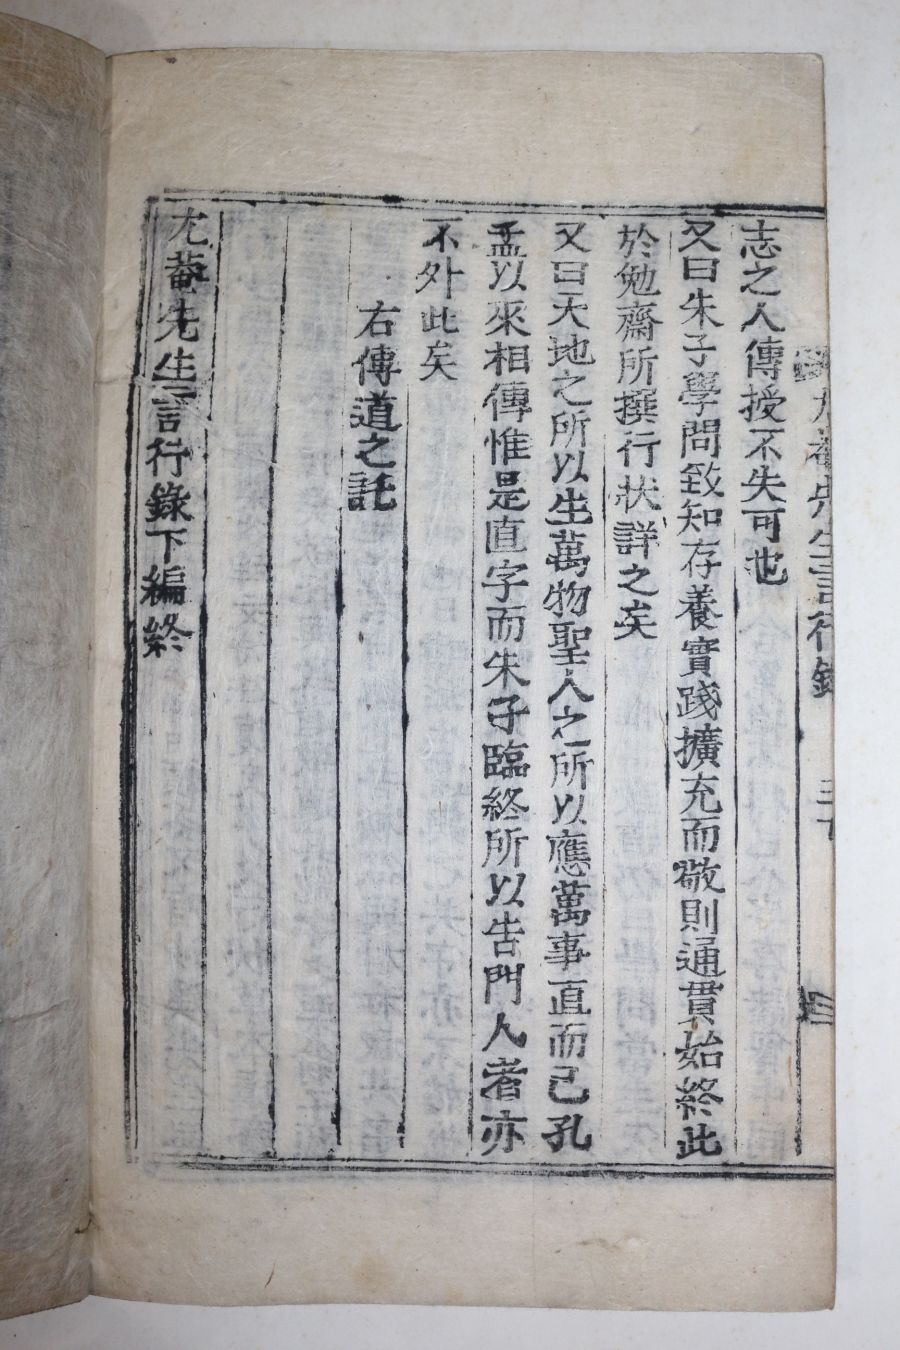 志之人傳授不失可也
又曰朱子學問致知存養實踐擴充而敬則通貫始終此
於勉齋所撰行狀詳之矣
又曰天地之所以生萬物聖人之所以應萬事直而已孔
孟以來相傳惟是直字而朱子臨終所以告門人者亦
不外此矣
右傳道之託
尤菴先生言行錄下編終
尤菴先生言行錄